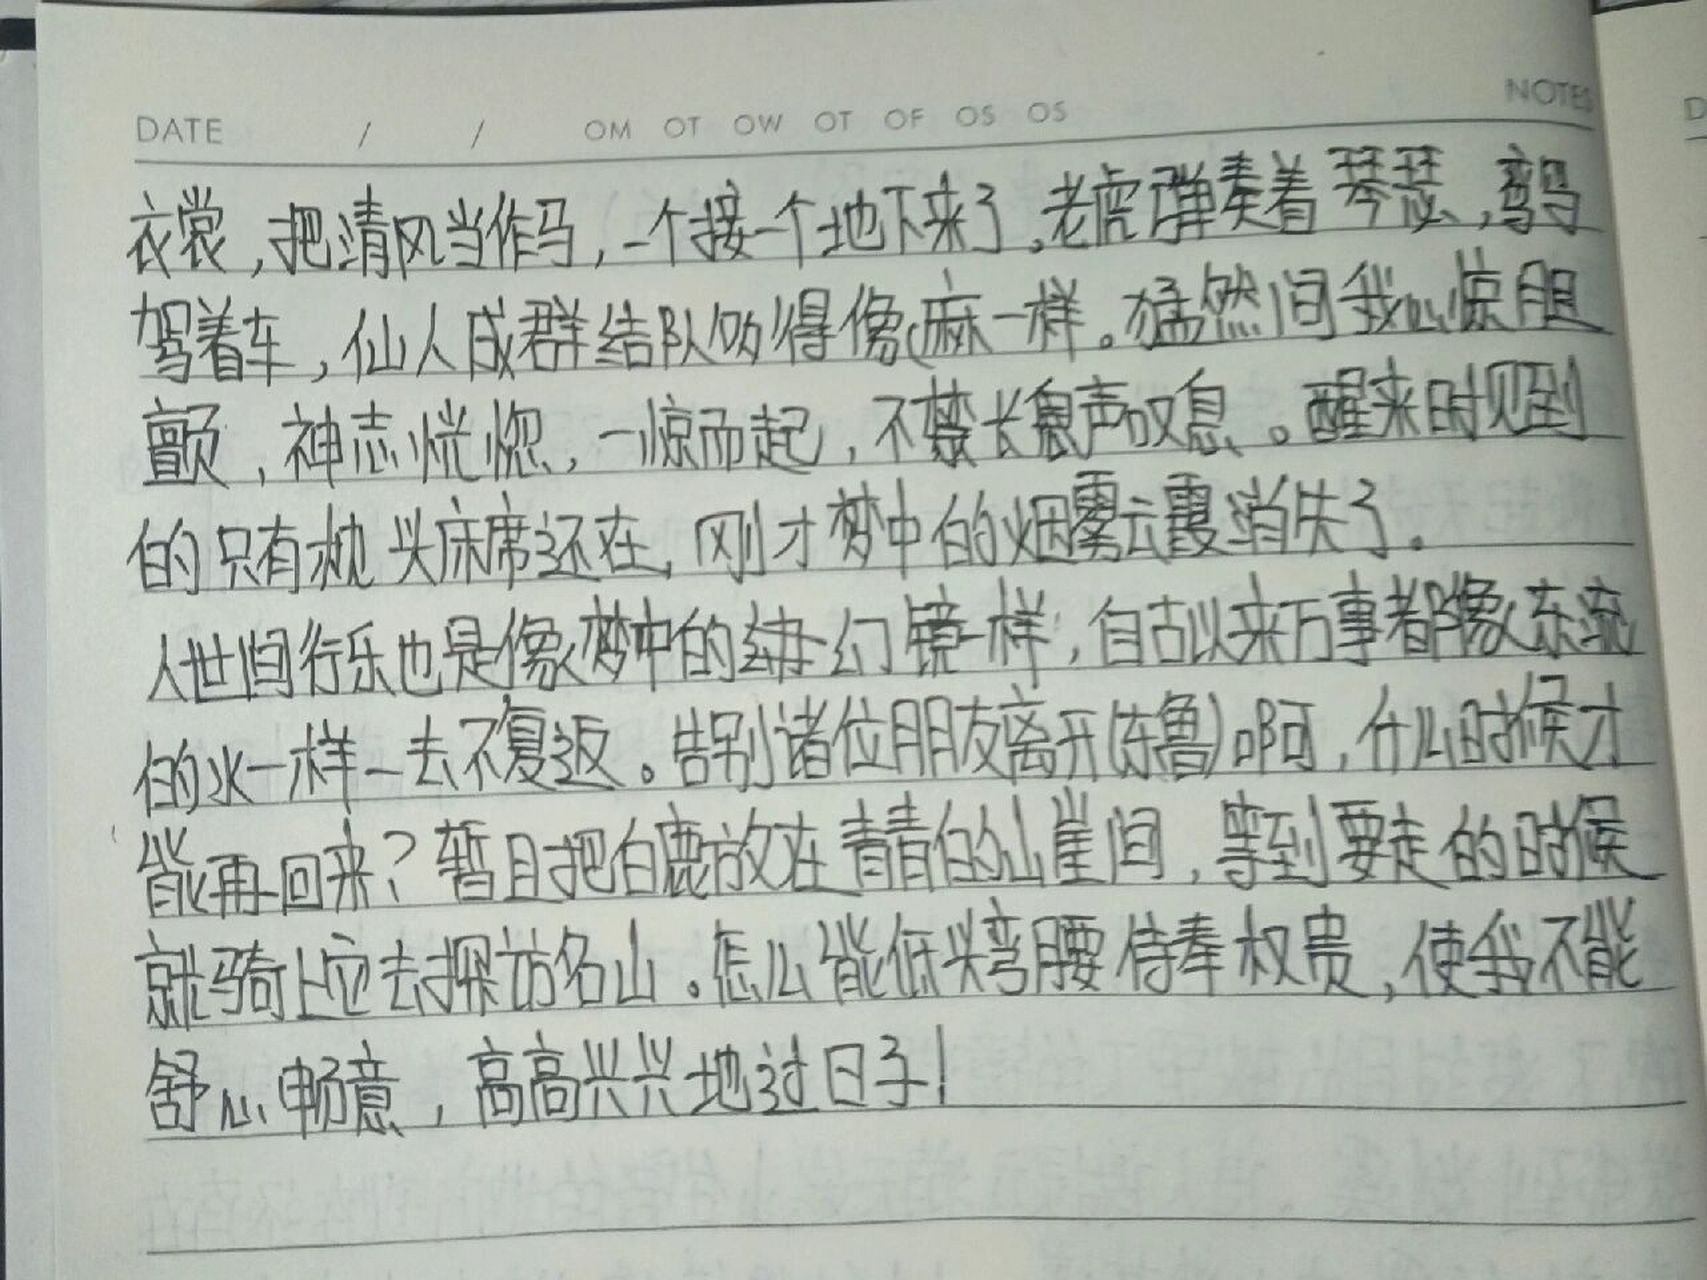 DATE / / OM OT OW OT OF OS OS NOTES
衣裳,把清风当作马,一个接一个地下来了。老虎弹奏着琴瑟,鸾鸟
驾着车,仙人成群结队 得像麻一样。猛然间我心惊胆
颤,神志恍惚,一惊而起,不禁长 声叹息。醒来时见到
的只有枕头床席还在,刚才梦中的烟雾云霞消失了。
人世间行乐也是像梦中的 幻镜一样,自古以来万事都像东流
的水一样一去不复返。告别诸位朋友离开(东鲁)啊,什么时候才
能再回来?暂且把白鹿放在青青的山崖间,等到要走的时候
就骑上它去探访名山。怎么能低头弯腰侍奉权贵,使我不能
舒心畅意,高高兴兴地过日子!